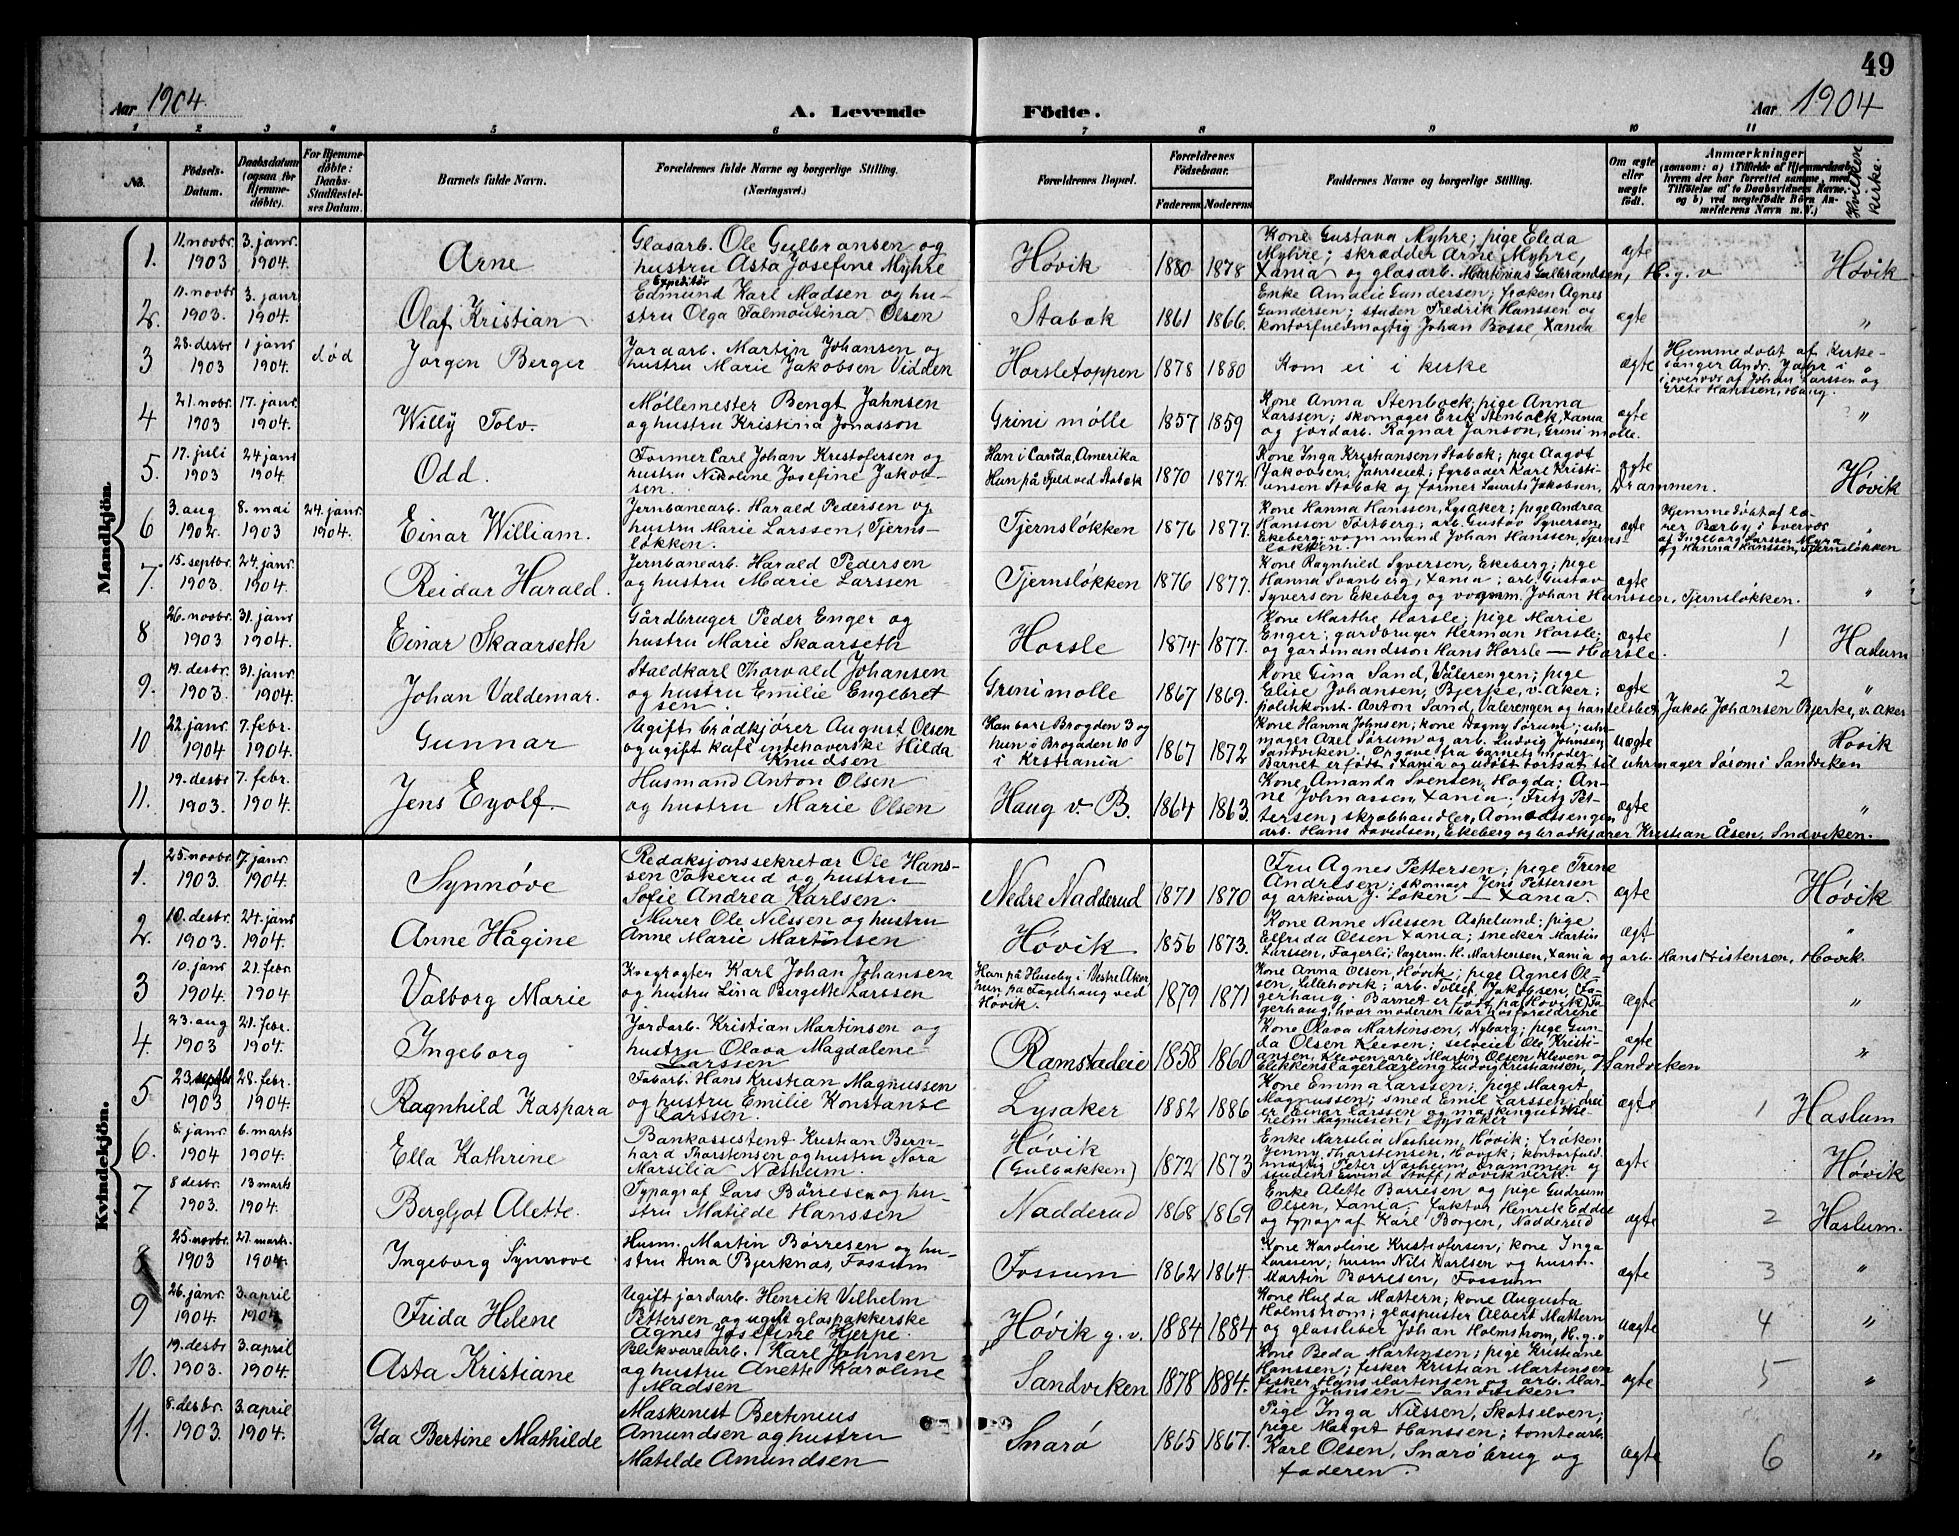 49
Aar 1904. A. Levende Födte. Aar 1904
1 2 3 4 5 6 7 8 9 10 11
No. Födsels-Datum. Daabsdatum (ogsaa for Hjemme-döbte). For Hjemme-döbte: Daabs-Stadfæstel-ses Datum. Barnets fulde Navn. Forældrenes fulde Navne og borgerlige Stilling. (Næringsvei.) Forældrenes Bopæl. Forældrenes Födselsaar. Faderens Moderens Faddernes Navne og borgerlige Stilling. Om ægte eller uægte födt. Anmærkninger Hvilken kirke.
Mandkjön.
1. 11. novbr. 1903 3. janr. 1904. Arne
Glasarb. Ole Gulbransen og
hustru Asta Josefine Myhre
Høvik 1880 1878
Kone Gustava Myhre; pige Elida
Myhre; skrædder Arne Myhre,
Xania og glasarb. Martinius Gulbrandsen, H. g. v
ægte Høvik
2. 11. novbr 1903. 3. janr 1904. Olaf Kristian
Expeditör
Edmund Karl Madsen og hu-
stru Olga Talmoutina Olsen
Stabæk 1861 1866.
Enke Amalie Gundersen; frøken Agnes
Gundersen; studen Fredrik Hanssen og
kontorfuldmægtig Johan Bosse Xania
ægte "
3 28. desbr 1903 1 janr 1904. død Jørgen Berger
Jordarb. Martin Johansen og
hustru Marie Jakobsen Vidden
Horsletoppen 1878 1880 Kom ei i kirke ægte
Hjemmedøbt af Kirke-
sanger Andr. Jahr i "
i overvær af Johan Larssen og
Grete Hanssen, Haug.
4 21. novbr 1903 17. janr 1904. Willy Tolv.
Møllemester Bengt Jahnsen
og hustru Kristina Jonasson
Grini mølle 1857 1859
Kone Anna Stenbock; pige Anna
Larssen; skomager Erik Stenbock, Xania
og jordarb. Ragnar Janson, Grini mølle.
ægte "
5 17. juli 1903 24 janr 1904. Odd.
Former Carl Johan Kristofersen og
hustru Nikoline Josefine Jakob-
sen.
Han i Canada, Amerika
Hun på Fjeld ved Stabæk
1870 1872
Kone Inga Kristiansen, Stabæk; pige Aagot
Jakobsen, Jahrseiet; fyrbøder Karl Kristi-
ansen Stabæk og former Laurits Jakobsen, Drammen.
ægte Høvik
6 3. aug 1902. 8. mai 1903 24. janr. 1904. Einar William.
Jernbanearb. Harald Pedersen og
hustru Marie Larssen, Tjerns-
løkken.
Tjernsløkken 1876 1877.
Kone Hanna Hanssen, Lysaker; pige Andrea
Hanssen Tørtberg; arb. Gustav Syversen,
Ekeberg; vognmand Johan Hanssen, Tjerns-
løkken.
ægte
Hjemmedøbt af læ-
rer Bærby i overvær
af Ingeborg Larssen Myra
og Hanna Hanssen, Tjernsløkken
"
7. 15. septbr 1903. 24. janr. 1904. Reidar Harald.
Jernbanearb. Harald Pedersen
og hustru Marie Larssen
Tjernsløkken 1876 1877.
Kone Ragnhild Syversen, Ekeberg; pige
Hanna Svanberg, Xania; arb. Gustav
Syversen Ekeberg og vognm. Johan Hanssen, Tjernsløkken.
ægte "
8 26. novbr 1903 31. janr 1904. Einar Skaarseth
Gårdbruger Peder Enger og
hustru Marie Skaarseth
Horsle 1874 1877.
Kone Marthe Horsle; pige Marie
Enger; gardbruger Herman Horsle;
og gardmandssøn Hans Horsle — Horsle.
ægte 1 Haslum
9. 19. desbr. 1903. 31. janr. 1904. Johan Valdemar.
Staldkarl Thorvald Johansen
og hustru Emilie Engebret
sen.
Grini mølle 1867 1869.
Kone Gina Sand, Vålerengen; pige
Elise Johansen, Bjerke, v. Aker;
politikonst. Anton Sand, Valerengen og handelsbet. Jakob Johansen Bjerke, v. Aker
ægte 2 "
10 22. janr. 1904 7. febr. 1904. Gunnar
Ugift brødkjører August Olsen
og ugift kafé indehaverske Hilda
Knudsen
Han bort Brogden 3 og
hun i Brogaden 10
i Kristiania
1867 1872
Kone Hanna Johnsen; kone Dagny Sørum; uhr-
mager Axel Sørum og arb. Ludvig Johnsen,
Sandviken. Opgave fra barnets moder.
Barnet er født i Xania og udsat bortsat til uhrmager Sørum i Sandviken
uægte Høvik
11. 19. desbr 1903. 7. febr. 1904. Jens Eyolf
Husmand Anton Olsen
og hustru Marie Olsen
Haug v. B. 1864 1863.
Kone Amanda Svensen, Høgda; An-
ne Johnassen, Xania; Fritz Pet-
tersen, skrabhandler,
arb. Hans Davidsen, Ekeberg og brødkjører Kristian Åsen, Sndviken.
ægte "
Kvindekjön.
1. 25. novbr. 1903. 17. janr. 1904. Synnøve
Redaksjonssekretær Ole Hans-
sen Takerud og hustru
Sofie Andrea Karlsen.
Nedre Nadderud 1871 1870
Fru Agnes Pettersen; pige Trine
Andresen; skomagr Jens Pettersen
og arkivar J. Løken — Xania.
ægte Høvik
2. 10. desbr. 1903. 24. janr 1904. Anne Hågine
Murer Ole Nilssen og hustru
Anne Marie Martinsen
Høvik 1856 1873.
Kone Anne Nilssen Aspelund; pige
Elfrida Olsen Xania; snedker Martin
Larssen, Fagerli; lagerm. H. Martensen, Xania og arb. Hans Kristensen, Høvik.
ægt "
3 10. janr 1904. 21. febr 1904 Valborg Marie
Kvægrøgter Karl Johan Johansen
og hustru Lina Bergette Larssen
Han på Huseby i Vestre Aker
hun på Fagerhaug ved
Høvik.
1879 1871
Kone Anna Olsen, Høvik; pige Agnes Ol-
sen, Lillehøvik; arb. Tollef Jakobsen, Fa-
gerhaug. Barnet er født på (Høvik) Fa-
gerhaug, hvor moderen bor hos forældrene
ægte "
4. 23. aug 1903 21. febr. 1904. Ingeborg
Jordarb. Kristian Martinsen og
hustru Olava Magdalene
Larssen
Ramstadeie 1858 1860
Kone Olava Martinsen, Nyborg; pige Gun-
da Olsen Kleven; selveier Ole Kristi-
ansen, Kleven, arb. Martin Olsen Kleven og
blikkenslagerlærling Ludvig Kristiansen, Sandviken
ægte "
5 23. septbr 1903 28. febr. 1904. Ragnhild Kaspara
Fabarb. Hans Kristian Magnussen
og hustru Emilie Konstanse
Larssen.
Lysaker 1882 1886
Kone Emma Larssen; pige Margit
Magnussen; smed Emil Larssen; drei
er Einar Larssen og maskingut Wil-
helm Magnussen, Lysaker
ægte 1 Haslum
6. 8. janr 1904 6. marts 1904. Ella Kathrine
Bankassistent Kristian Bern-
hard Thorstensen og hustru Nora
Marsilia Næsheim.
Høvik
(Gulbakken)
1872 1873
Enke Marselia Næsheim, Høvik; frøken
Jenny Thorstensen, Høvik; kontorfuld-
mægtig Peter Næsheim, Drammen og
student Eivind Stoff, Høvik verk.
ægte Høvik
7 8 desbr. 1903. 13 marts 1904. Bergljot Alette.
Typograf Lars Børresen og hu-
stru Matilde Hanssen
Nadderud 1868 1869
Enke Alette Børresen og pige Gudrum
Olsen, Xania; faktor Henrik Eddes
og typograf Karl Borgen, Nadderud
ægte 2 Haslum.
8 25. novbr. 1903 27. marts. 1904. Ingeborg Synnøve
Husm. Martin Børresen og hu-
stru Dina Bjerknæs, Fossum
Fossum 1862 1864.
Kone Karoline Kristofersen; kone Inga
Larssen; husm Nils Karlsen og husm.
Martin Børresen, Fossum
ægte 3 "
9 26. janr. 1904. 3. april 1904. Frida Helene
Ugift jordarb. Henrik Vilhelm
Pettersen og ugift glaspakkerske
Agnes Josefine Hjerpe.
Høvik g. v. 1884 1884
Kone Hulda Mattern; kone Augusta
Holmstrøm; glaspuster Albert Mattern
og glassliber Johan Holmstrøm, H. g. v
uægte 4 "
10. 19. desbr 1903. 3. april 1904. Asta Kristiane
Blikvarearb. Karl Johnsen
og hustru Anette Karoline
Madsen
Sandviken 1878 1884.
Kone Beda Martensen; pige Kristiane
Hanssen; fisker Kristian Martensen
fisker Hans Martensen og arb. Mar-
tin Johnsen — Sandviken
ægte 5 "
11. 8. desbr. 1903. 3. april 1904. Ida Bertine Mathilde
Maskinist Bertinius
Amundsen og hustru
Matilde Amundsen
Snarø 1865 1867.
Pige Inga Nilssen, Skotselven;
pige Margit Hanssen; tomtearb.
Karl Olsen, Snarø brug og
faderen.
ægte 6 "